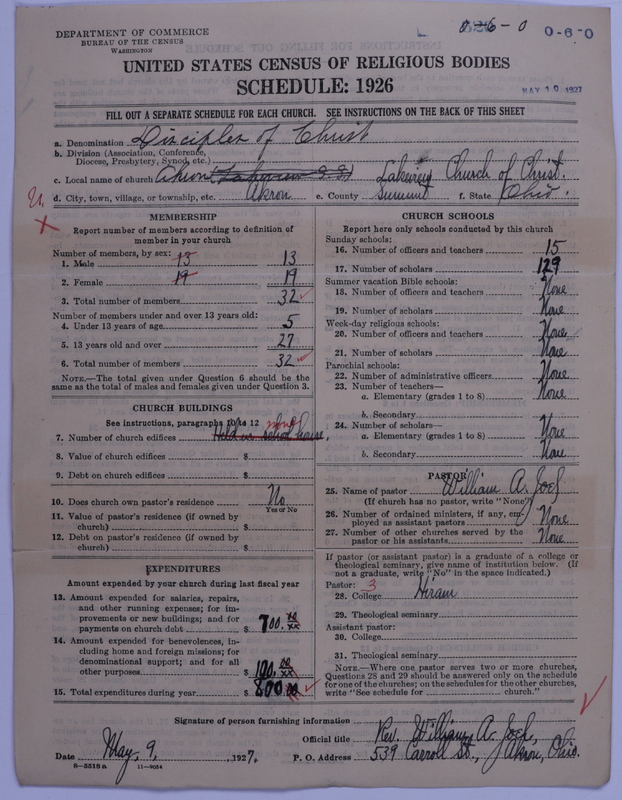 DEPARTMENT OF COMMERCE
BUREAU OF THE CENSUS
WASHINGTON
0-6-0
UNITED STATES CENSUS OF RELIGIOUS BODIES
SCHEDULE: 1926
MAY 10 1927
FILL OUT A SEPARATE SCHEDULE FOR EACH CHURCH. SEE INSTRUCTIONS ON THE BACK OF THIS SHEET
a. Denomination Disciples of Christ
b. Division (Association, Conference, Diocese, Presbytery, Synod, etc.)
c. Local name of church Akron Lakeview Church of Christ.
d. City, town, village, or township, etc. Akron e. County Summit f. State Ohio.
MEMBERSHIP
Report number of members according to definition of member in your church
Number of members, by sex:
1. Male 13 13
2. Female 19 19
3. Total number of members 32
Number of members under and over 13 years old:
4. Under 13 years of age 5
5. 13 years old and over 27
6. Total number of members 32
NOTE.—The total given under Question 6 should be the same as the total of males and females given under Question 3.
CHURCH BUILDINGS
See instructions, paragraphs 10 to 12
7. Number of church edifices Held in school house, none
8. Value of church edifices $
9. Debt on church edifices $
10. Does church own pastor's residence No
Yes or No
11. Value of pastor's residence (if owned by church) $
12. Debt on pastor's residence (if owned by church) $
EXPENDITURES
Amount expended by your church during last fiscal year
13. Amount expended for salaries, repairs, and other running expenses; for improvements or new buildings; and for payments on church debt $ 700. xx/xx
14. Amount expended for benevolences, including home and foreign missions; for denominational support; and for all other purposes $ 100. 00/xx
15. Total expenditures during year $ 800 00
CHURCH SCHOOLS
Report here only schools conducted by this church
Sunday schools:
16. Number of officers and teachers 15
17. Number of scholars 129
Summer vacation Bible schools:
18. Number of officers and teachers None
19. Number of scholars None
Week-day religious schools:
20. Number of officers and teachers None
21. Number of scholars None
Parochial schools:
22. Number of administrative officers None
23. Number of teachers—
a. Elementary (grades 1 to 8) None
b. Secondary
24. Number of scholars—
a. Elementary (grades 1 to 8) None
b. Secondary None
PASTOR
25. Name of pastor William A.
(If church has no pastor, write "None")
26. Number of ordained ministers, if any, employed as assistant pastors None
27. Number of other churches served by the pastor or his assistants None
If pastor (or assistant pastor) is a graduate of a college or theological seminary, give name of institution below. (If not a graduate, write "No" in the space indicated.)
Pastor: 3
28. College Hiram
29. Theological seminary
Assistant pastor:
30. College
31. Theological seminary
NOTE.—Where one pastor serves two or more churches, Questions 28 and 29 should be answered only on the schedule for one of the churches; on the schedules for the other churches, write "See schedule for church."
Signature of person furnishing information
Official title Rev. William A.
Date May, 9, 1927. P. O. Address 539 Carroll St., Akron, Ohio.
8-5518a 11-9054